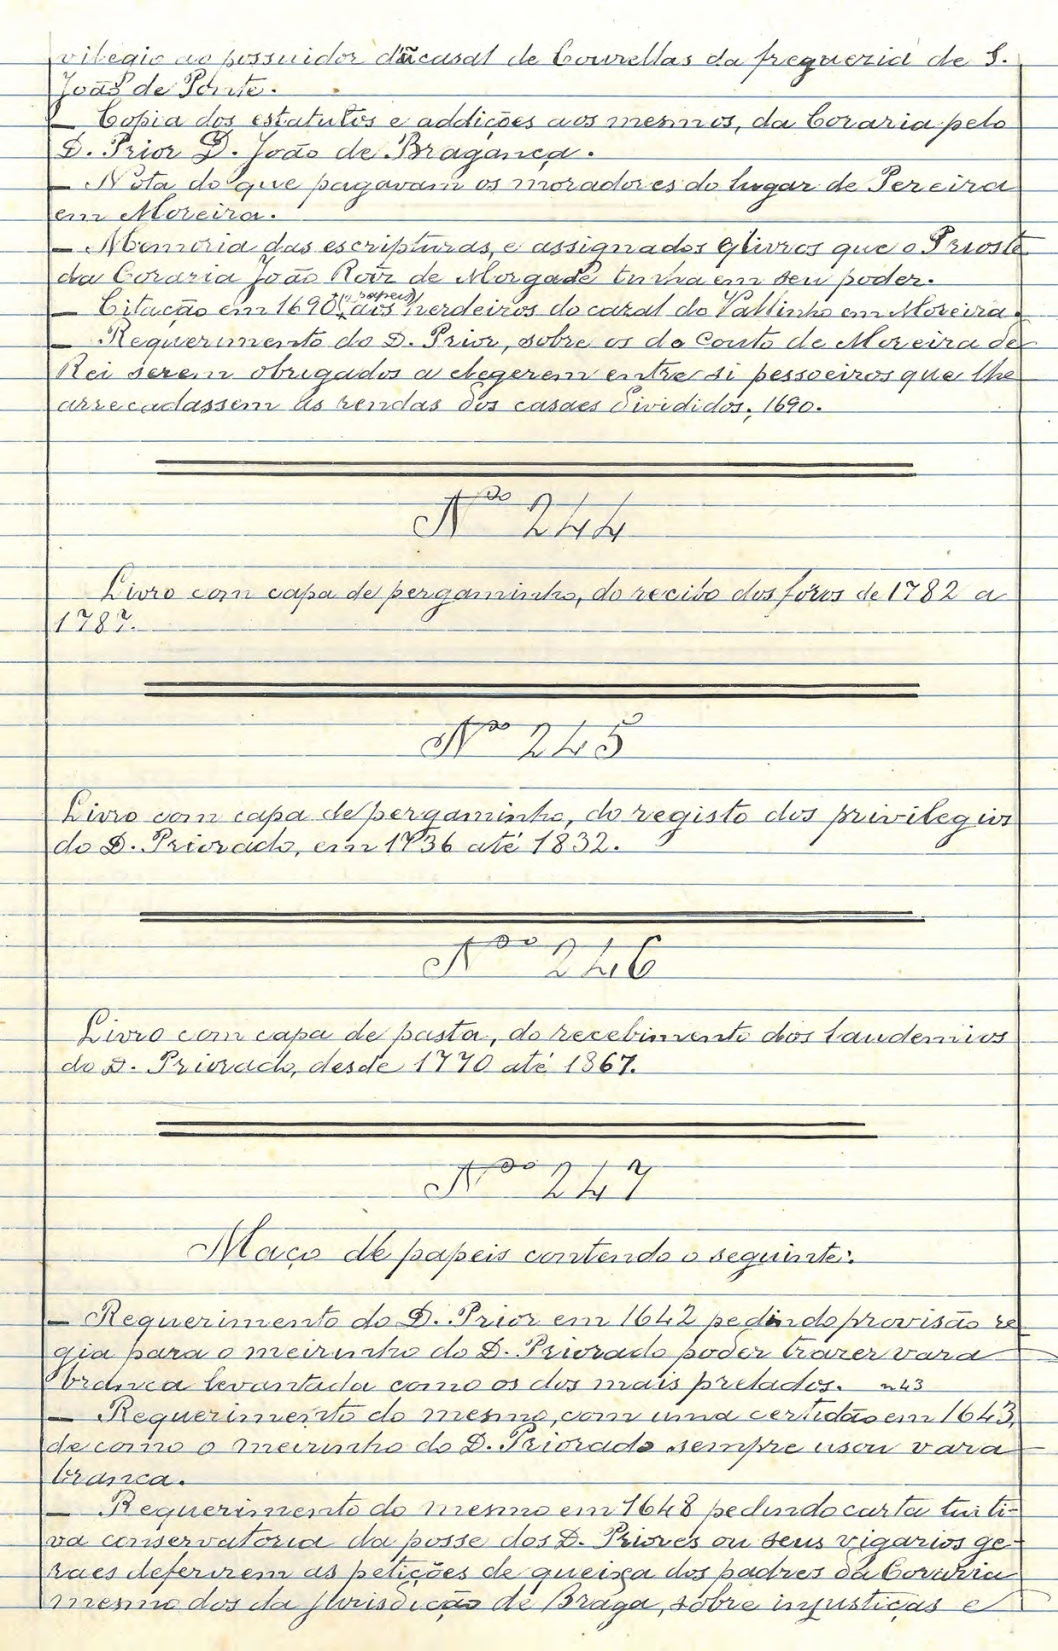 vilegio ao possuidor do casal de Courellas da freguezia de S.
João de Ponte.
— Copia dos estatutos e addições aos mesmos, da Coraria pelo
D. Prior D. João de Bragança.
— Nota do que pagavam os moradores do lugar de Pereira
em Moreira.
— Memoria das escripturas, e assignados e livros que o Prioste
da Coraria João Roiz de Morgade tinha em seu poder.
— Citação em 1690 (2 papeis) aos herdeiros do cazal do Vallinho em Moreira.
— Requerimento do D. Prior, sobre os do Couto de Moreira de
Rei serem obrigados a elegerem entre si pessoeiros que lhe
arrecadassem as rendas dos casaes divididos, 1690.
Nº 244
Livro com capa de pergaminho, do recibo dos fóros de 1782 a
1787.
Nº 245
Livro com capa de pergaminho, do registo dos privilegios
do D. Priorado, em 1736 até 1832.
Nº 246
Livro com capa de pasta, do recebimento dos laudemios
do D. Priorado, desde 1770 até 1867.
Nº 247
Maço de papeis contendo o seguinte:
— Requerimento do D. Prior em 1642 pedindo provisão re
gia para o meirinho do D. Priorado poder trazer vara
branca levantada como os dos mais prelados. n43
— Requerimento do mesmo, com uma certidão em 1643,
de como o meirinho do D. Priorado sempre usou vara
branca.
— Requerimento do mesmo em 1648 pedindo carta tuiti-
va conservatoria da posse dos D. Priores ou seus vigarios ge-
raes deferirem as petições de queixa dos padres da Coraria
mesmo dos da jurisdicção de Braga, sobre injustiças e